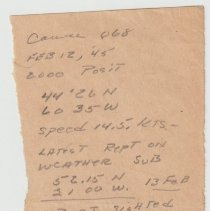 Course 068
FEB 12, '45
2000 Posit
44° 26 N
60 35 W
Speed 14.5. KTS.-
LATEST Rept ON
WEATHER SUB
52.15 N
21.00 W. 13 FEB
SIGHTED